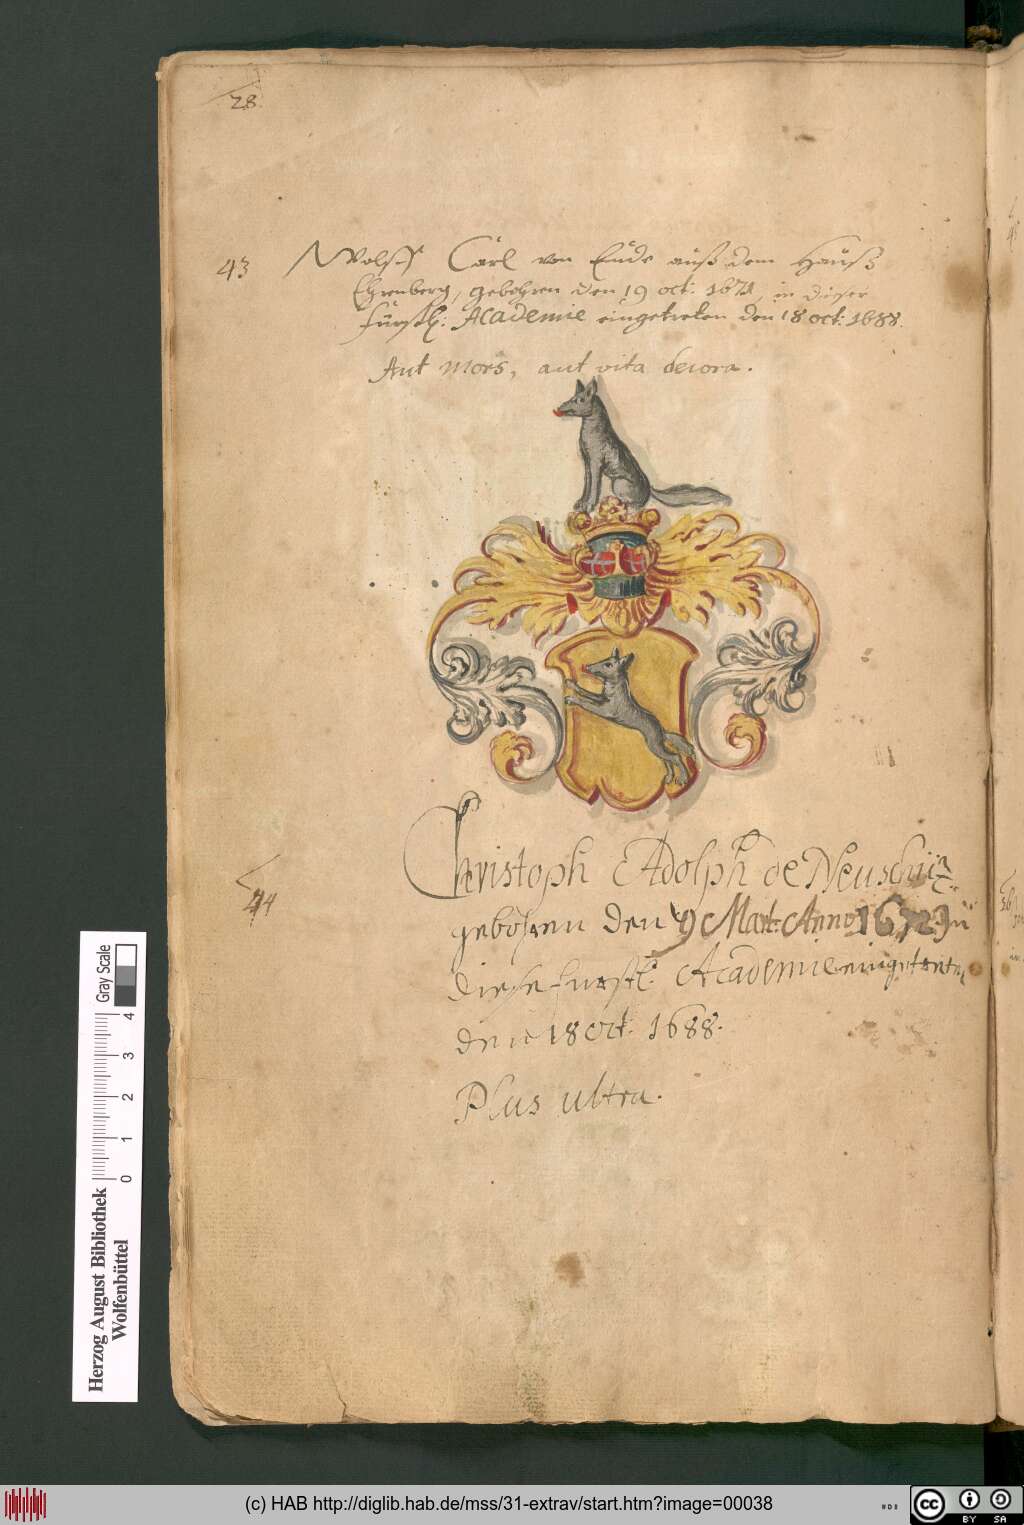 28.
43 Wolff Carl von Ende auß dem Hauß
Ehrenberg, gebohren den 19 oct: 1671, in dieser
Fürstl: Academie eingetreten den 18 oct: 1688.
Aut mors, aut vita decora.
44 Christoph Adolph de Neuschüz
gebohren den 9 Mart: Anno 1672 In
diese furstl: Academie eingetreten
den 18 Oct: 1688.
Plus ultra.
Gray Scale
0 1 2 3 4
Herzog August Bibliothek
Wolfenbüttel
(c) HAB http://diglib.hab.de/mss/31-extrav/start.htm?image=00038
cc BY SA